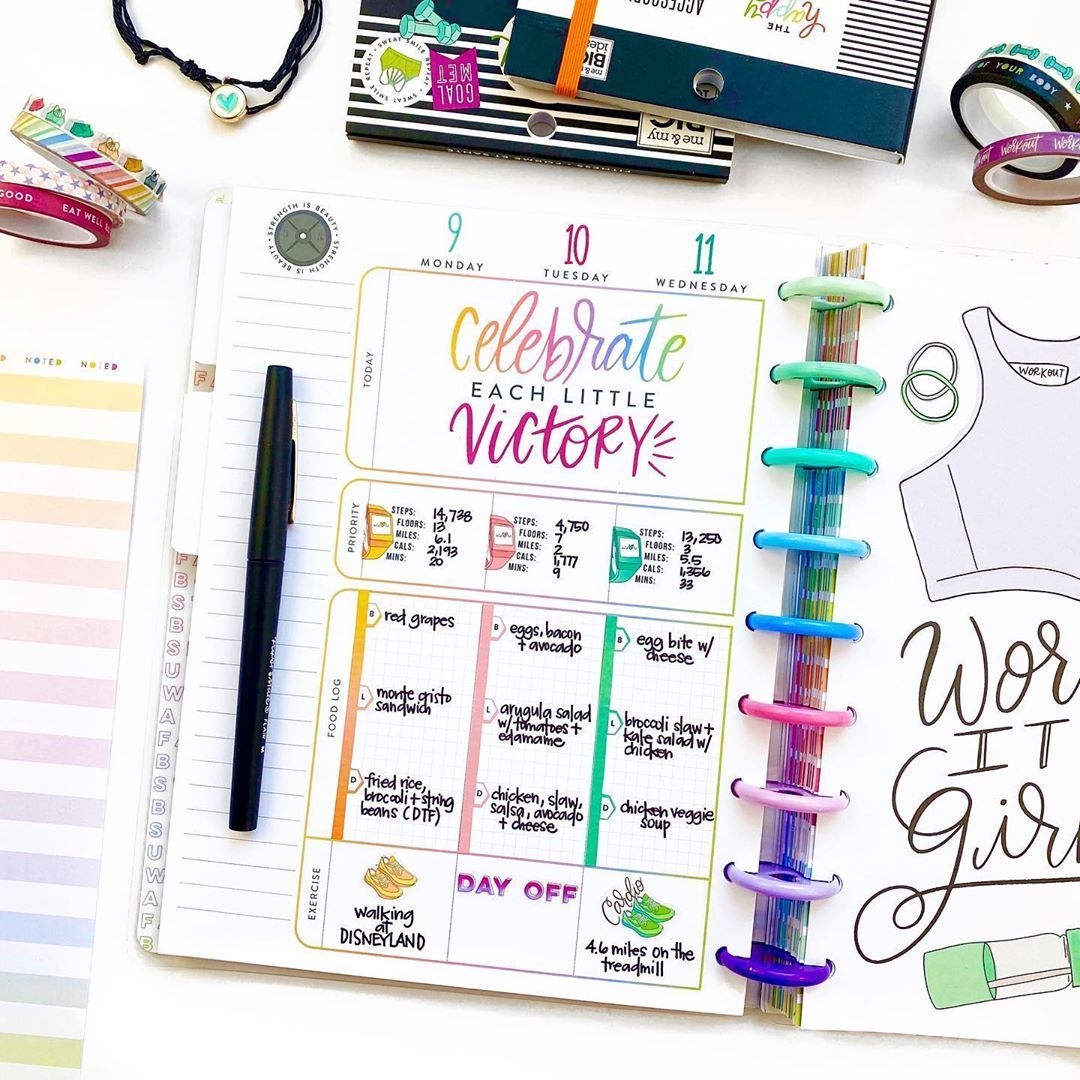 ACCESSORI
THE
happy
me & my
BIG
idea
SWEAT SMILE REPEAT • SWEAT SMILE REPEAT
GOAL
MET
me & my
BIG
OF YOUR BODY
WORKOUT
GOOD
EAT WELL
STRENGTH IS BEAUTY • STRENGTH IS BEAUTY
9
MONDAY
10
TUESDAY
11
WEDNESDAY
NOTED NOTED
TODAY
Celebrate
EACH LITTLE
VICTORY
WORKOUT
PRIORITY
STEPS: 14,738
FLOORS: 13
MILES: 6.1
CALS: 2,193
MINS: 20
STEPS: 4,750
FLOORS: 7
MILES: 2
CALS: 1,777
MINS: 9
STEPS: 13,250
FLOORS: 3
MILES: 5.5
CALS: 1,356
MINS: 33
FOOD LOG
B red grapes
L monte cristo
sandwich
D fried rice,
broccoli + string
beans (DTF)
B eggs, bacon
+ avocado
L arugula salad
w/ tomatoes +
edamame
D chicken, slaw,
salsa, avocado
+ cheese
B egg bite w/
cheese
L broccoli slaw +
kale salad w/
chicken
D chicken veggie
soup
EXERCISE
walking
at
DISNEYLAND
DAY OFF
Cardio
4.6 miles on the
treadmill
WOR
IT
girl
F
B
S
B
S
U
W
A
F
B
S
B
S
U
W
A
F
B